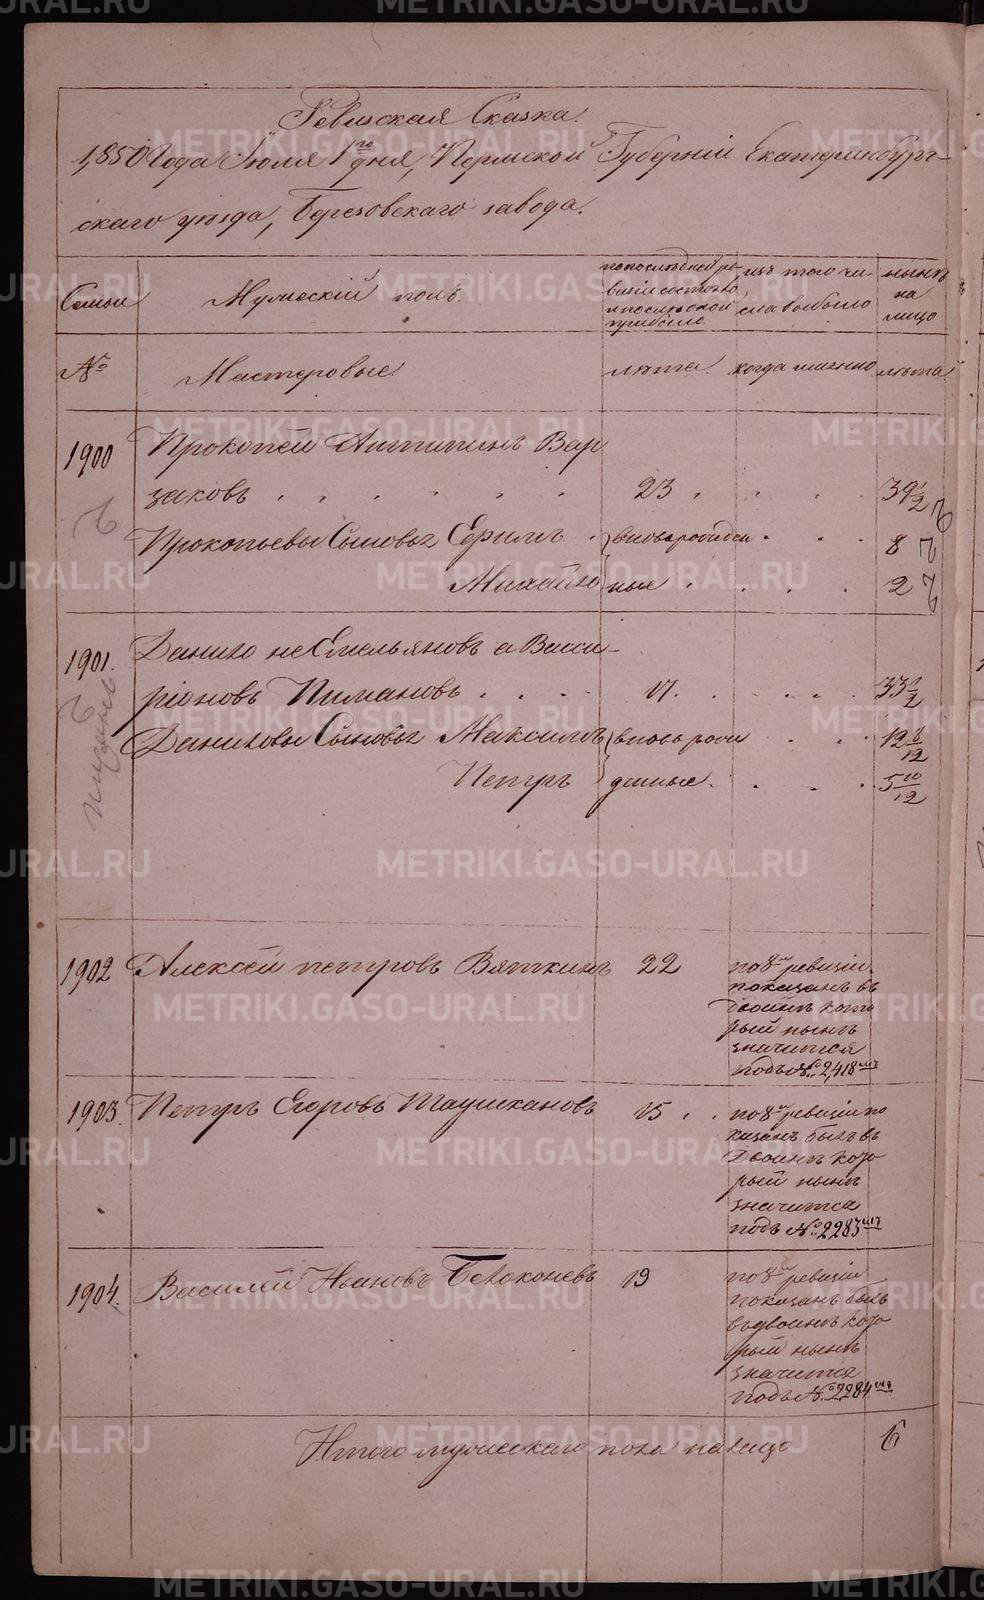 Ревизская Сказка.
1850 Года Июля 1го дня, Пермской Губерніи Екатеринбург-
скаго уѣзда, Березовскаго завода.
Семьи
Мужескій полъ.
по послѣдней ре-
визіи состояло
и после оной
прибыло.
изъ того чи
сла выбыло
нынѣ
на
лицо
№
Мастеровые
лѣта.
когда именно
лѣта.
1900
Прокопей Антипинъ Вар
заковъ
23
39 1/2
Прокопьевы Сыновья
вновь рожден
8
Михайло
ные
2
1901.
Данило не Емельяновъ а Васи-
ріоновъ Пимановъ
17.
33 1/2
Даниловы Сыновья Максимъ
вновь рож
12 8/12
Петръ
денные.
5 10/12
1902
Алексей петровъ Вяткинъ
22
по 8й ревизіи
показанъ въ
двойнѣ кото
рый нынѣ
значится
подъ № 2,418мъ
1903
Петръ Егоровъ Таушкановъ
15
по 8й ревизіи по
казанъ былъ въ
двойнѣ кото
рый нынѣ
значится
подъ № 2283мъ
1904.
Василей Ивановъ Белоконевъ
19
по 8й ревизіи
показанъ былъ
въ двойнѣ кото
рый нынѣ
значится
подъ № 2,284мъ
Итого мужескаго пола налицо
6
METRIKI.GASO-URAL.RU